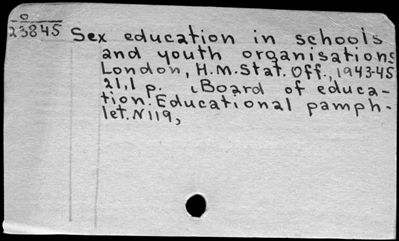 0
23845 Sex education in schools
and youth organisations
London, H.M. Stat. Off., 1943-45
21,1 p. (Board of educa-
tion. Educational pamph-
let. N119,